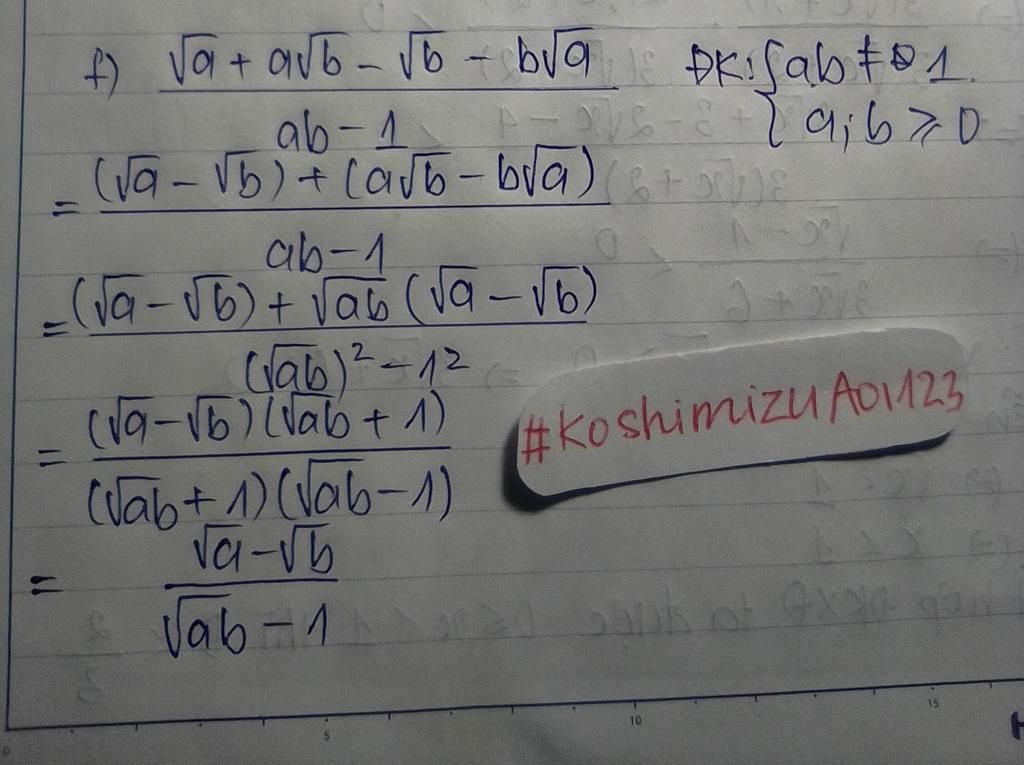 f) √a + a√b - √b - b√a / ab - 1 ĐK: { ab ≠ 1
{ a; b ⩾ 0
= (√a - √b) + (a√b - b√a) / ab - 1
= (√a - √b) + √ab (√a - √b) / (√ab)² - 1²
= (√a - √b)(√ab + 1) / (√ab + 1)(√ab - 1)
= √a - √b / √ab - 1
#KoshimizuAoi123
0 5 10 15